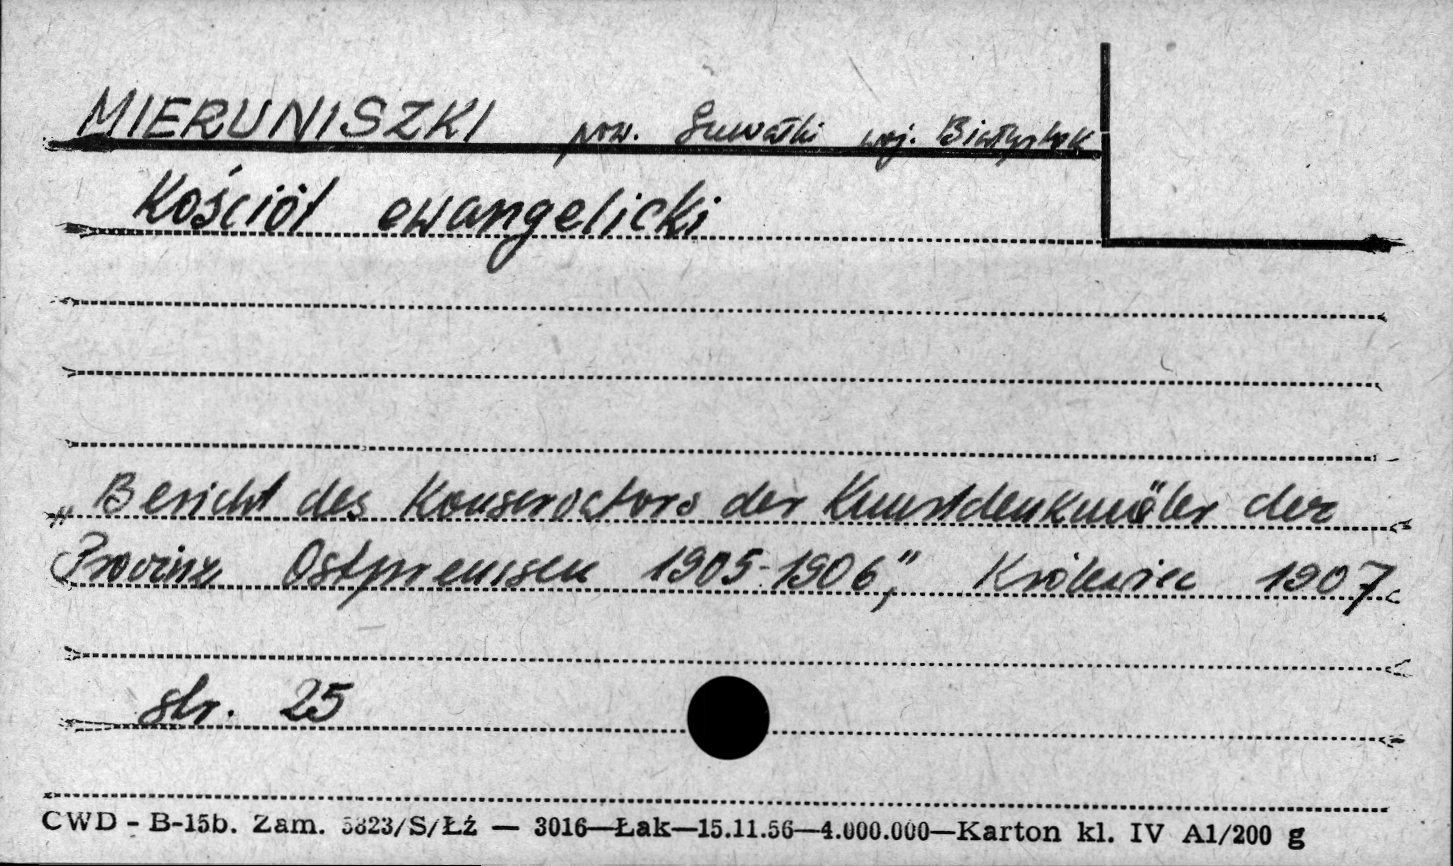 MIERUNISZKI pow. Suwałki woj. Białystok
Kościół ewangelicki
„Bericht des Konservators der Kunstdenkmäler der
Provinz Ostpreussen 1905-1906”, Królewiec 1907
str. 25
CWD - B-15b. Zam. 5823/S/Łź — 3016—Łak—15.11.56—4.000.000—Karton kl. IV A1/200 g